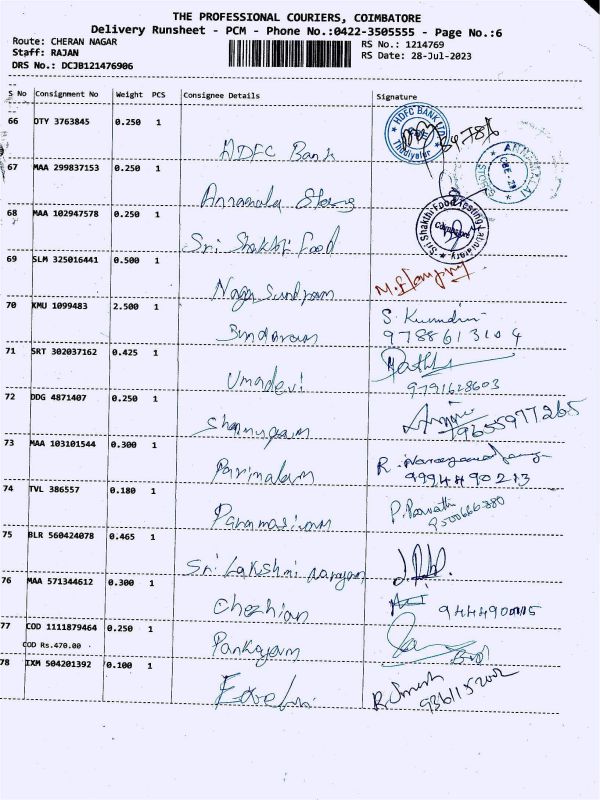 THE PROFESSIONAL COURIERS, COIMBATORE
Delivery Runsheet - PCM - Phone No.:0422-3505555 - Page No.:6
Route: CHERAN NAGAR RS No.: 1214769
Staff: RAJAN RS Date: 28-Jul-2023
DRS No.: DCJB121476906
S No Consignment No Weight PCS Consignee Details Signature
66 OTY 3763845 0.250 1
HDFC BANK
Thudiyalur
HDFC Bank
67 MAA 299837153 0.250 1
STORES
Annamalai Stores
68 MAA 102947578 0.250 1
Sri Shakthi Food Testing Laboratory
Coimbatore
Sri Shakthi Food
69 SLM 325016441 0.500 1
Naga Sundram
70 KMU 1099483 2.500 1
S. Kumudini
9788613104
71 SRT 302037162 0.425 1
Umadevi
9791628603
72 DDG 4871407 0.250 1
Shanmugam
9655977265
73 MAA 103101544 0.300 1
Parimalam
R.
9994490213
74 TVL 386557 0.180 1
Paramasivam
P. Parvathi
9500666380
75 BLR 560424078 0.465 1
Sri Lakshmi narayan
76 MAA 571344612 0.300 1
Chezhian
77 COD 1111879464 0.250 1
COD Rs.470.00
Pankajam
78 IXM 504201392 0.100 1
R. Umesh
9361152002